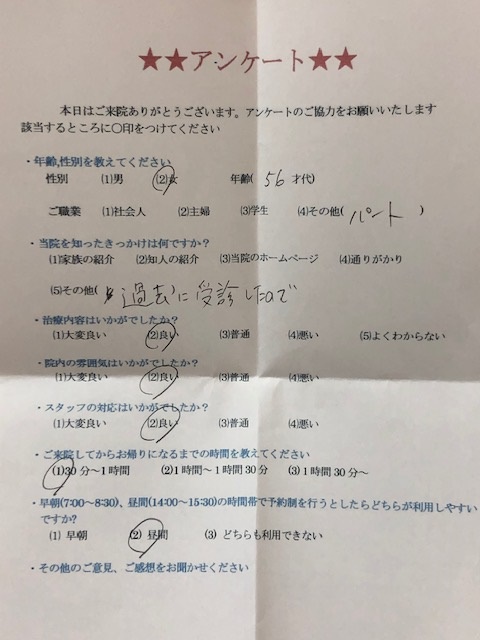 ★★アンケート★★
本日はご来院ありがとうございます。アンケートのご協力をお願いいたします
該当するところに〇印をつけてください
・年齢,性別を教えてください
性別 (1)男 (2)女 年齢( 56 才代)
ご職業 (1)社会人 (2)主婦 (3)学生 (4)その他( パート )
・当院を知ったきっかけは何ですか?
(1)家族の紹介 (2)知人の紹介 (3)当院のホームページ (4)通りがかり
(5)その他( 過去に受診したので
・治療内容はいかがでしたか?
(1)大変良い (2)良い (3)普通 (4)悪い (5)よくわからない
・院内の雰囲気はいかがでしたか?
(1)大変良い (2)良い (3)普通 (4)悪い
・スタッフの対応はいかがでしたか?
(1)大変良い (2)良い (3)普通 (4)悪い
・ご来院してからお帰りになるまでの時間を教えてください
(1)30分~1時間 (2)1時間~1時間30分 (3)1時間30分~
・早朝(7:00~8:30)、昼間(14:00~15:30)の時間帯で予約制を行うとしたらどちらが利用しやすい
ですか?
(1) 早朝 (2) 昼間 (3) どちらも利用できない
・その他のご意見、ご感想をお聞かせください